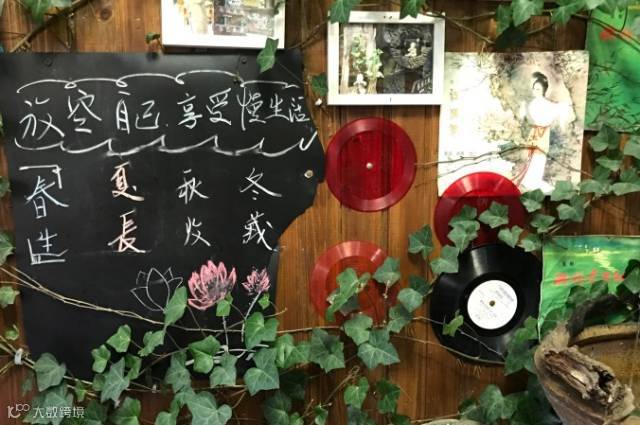 放空自己 享受慢生活
春 夏 秋 冬
生 長 收 藏
大数跨境